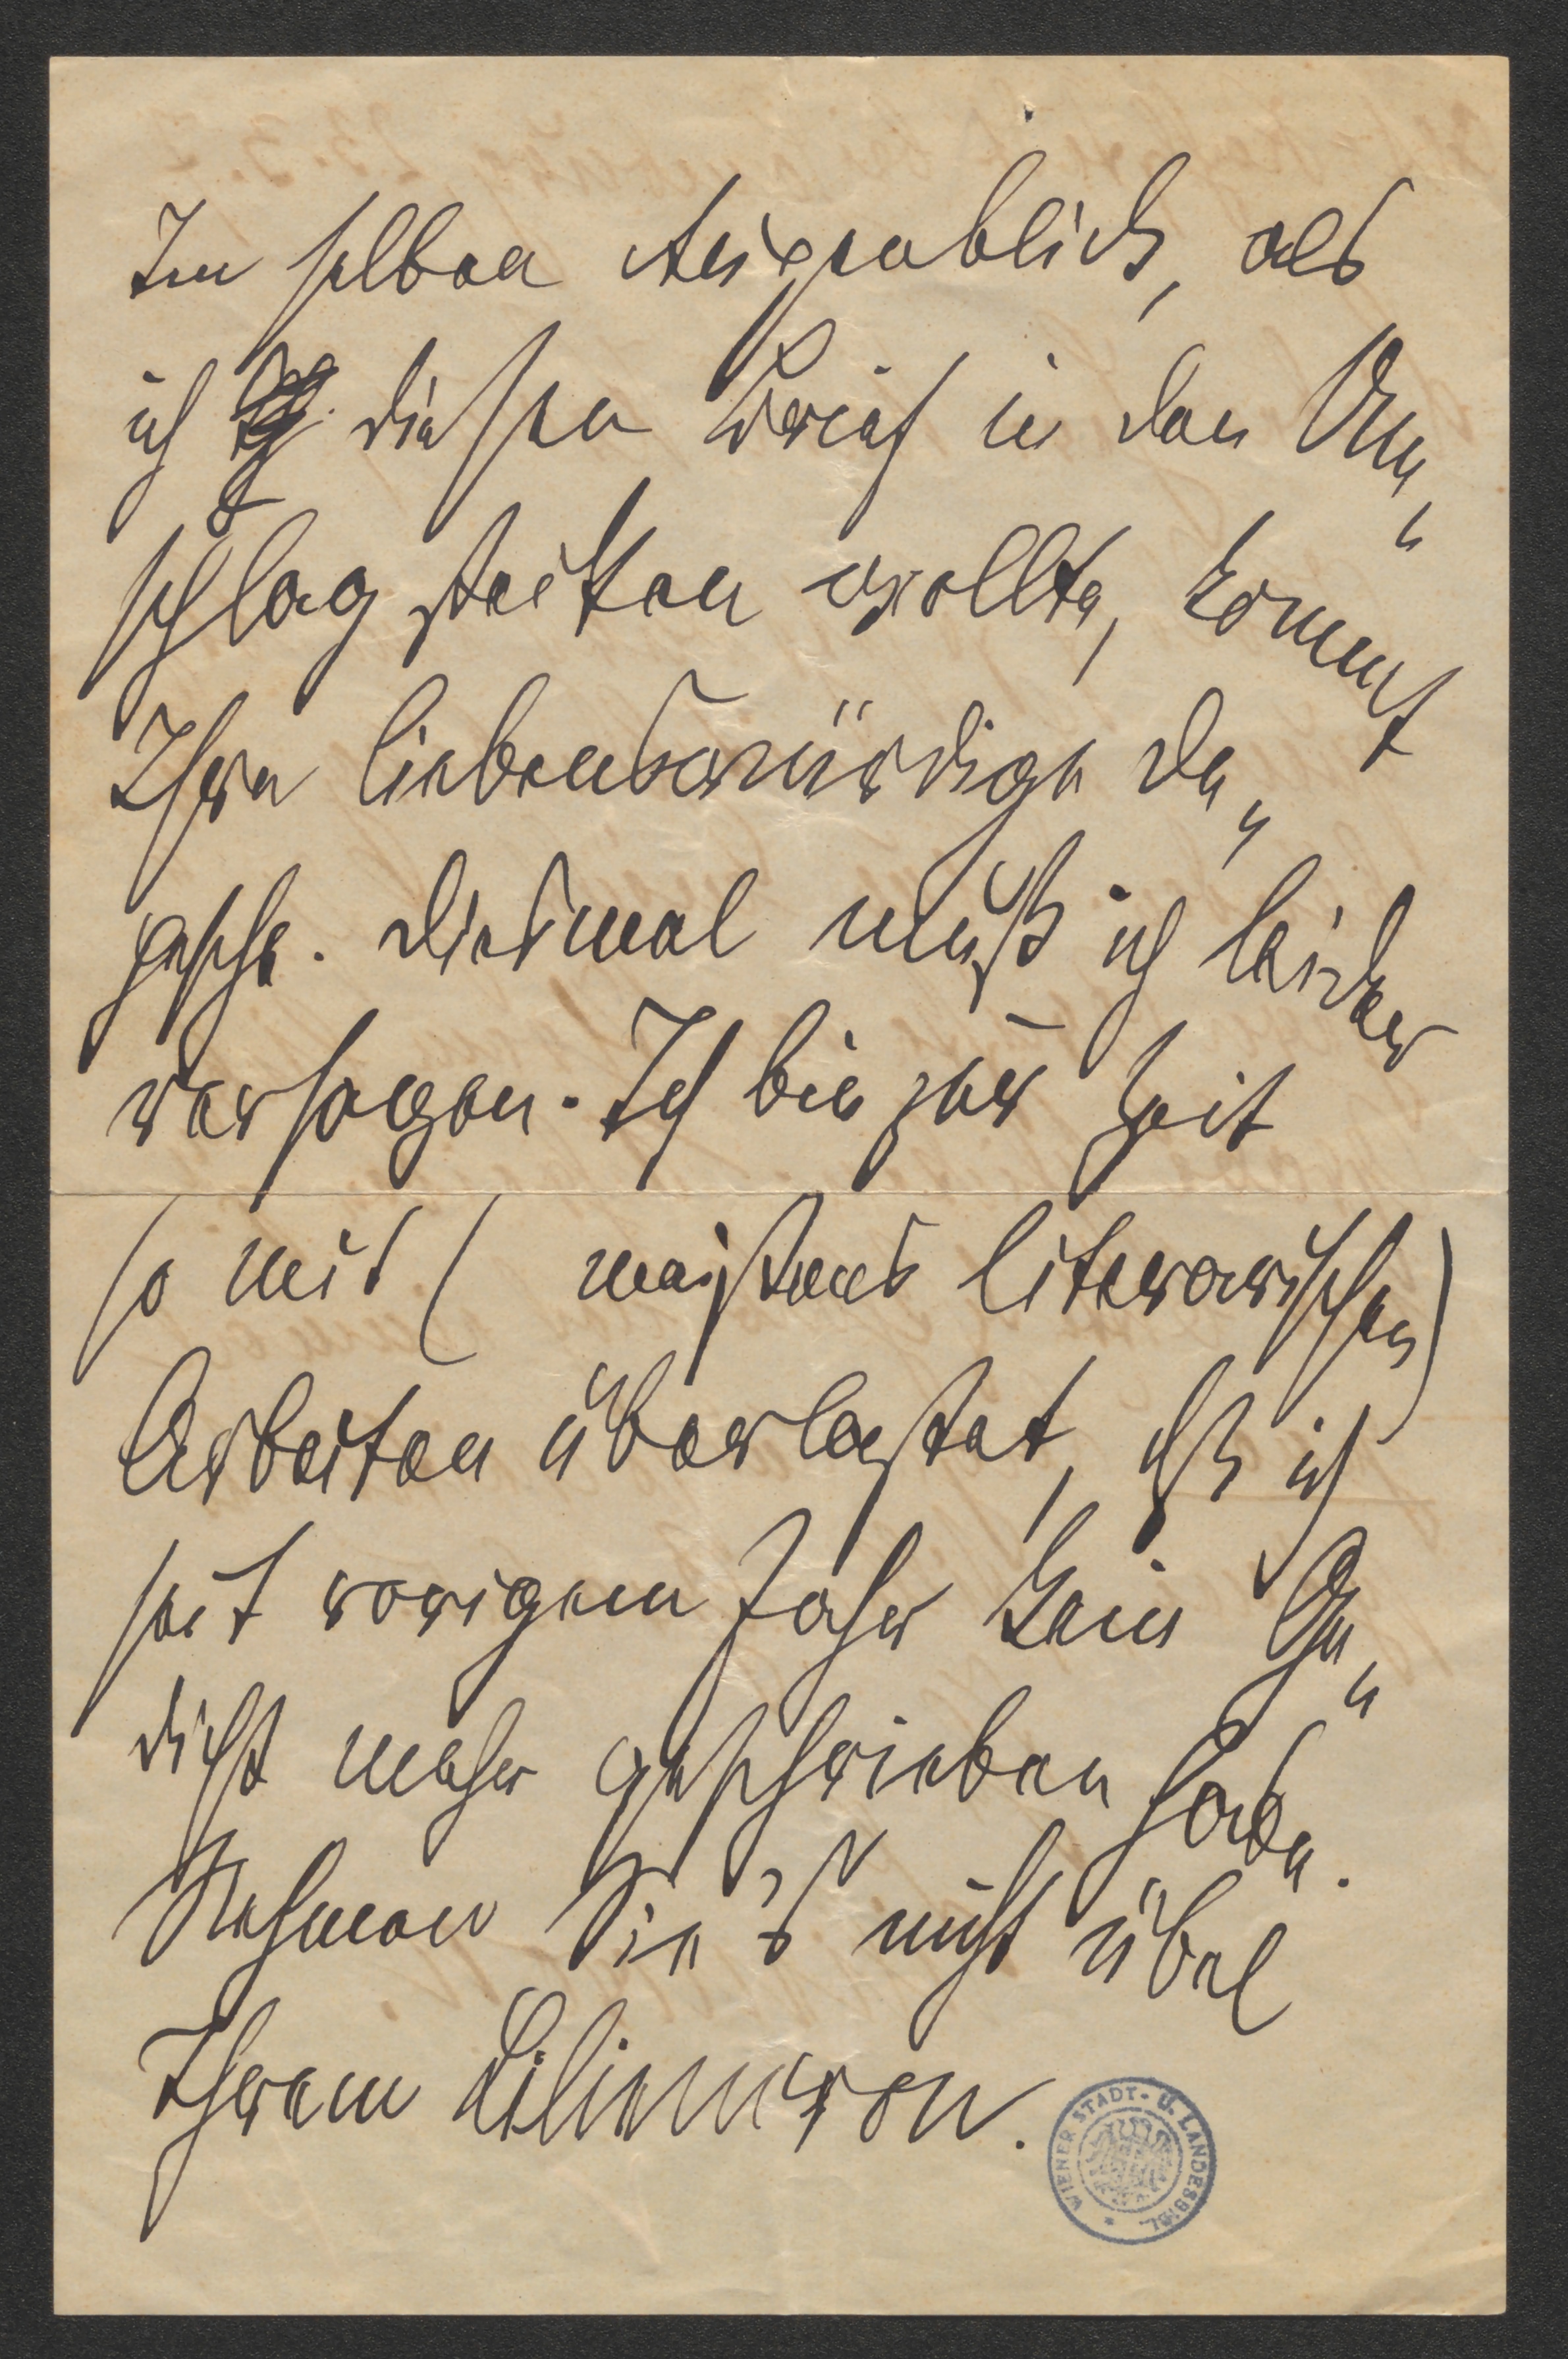 Im selben Augenblick, als
ich diesen Brief in den Um„
schlag stecken wollte, kommt
Ihre liebenswürdige De„
pesche. Diesmal muß ich leider
versagen. Ich bin zur Zeit
so mit (meistens literarischen)
Arbeiten überlastet, daß ich
seit vorigem Jahr kein Ge„
dicht mehr geschrieben habe.
Nehmen Sie's nicht übel
Ihrem Liliencron.
WIENER STADT- U. LANDESBIBL.